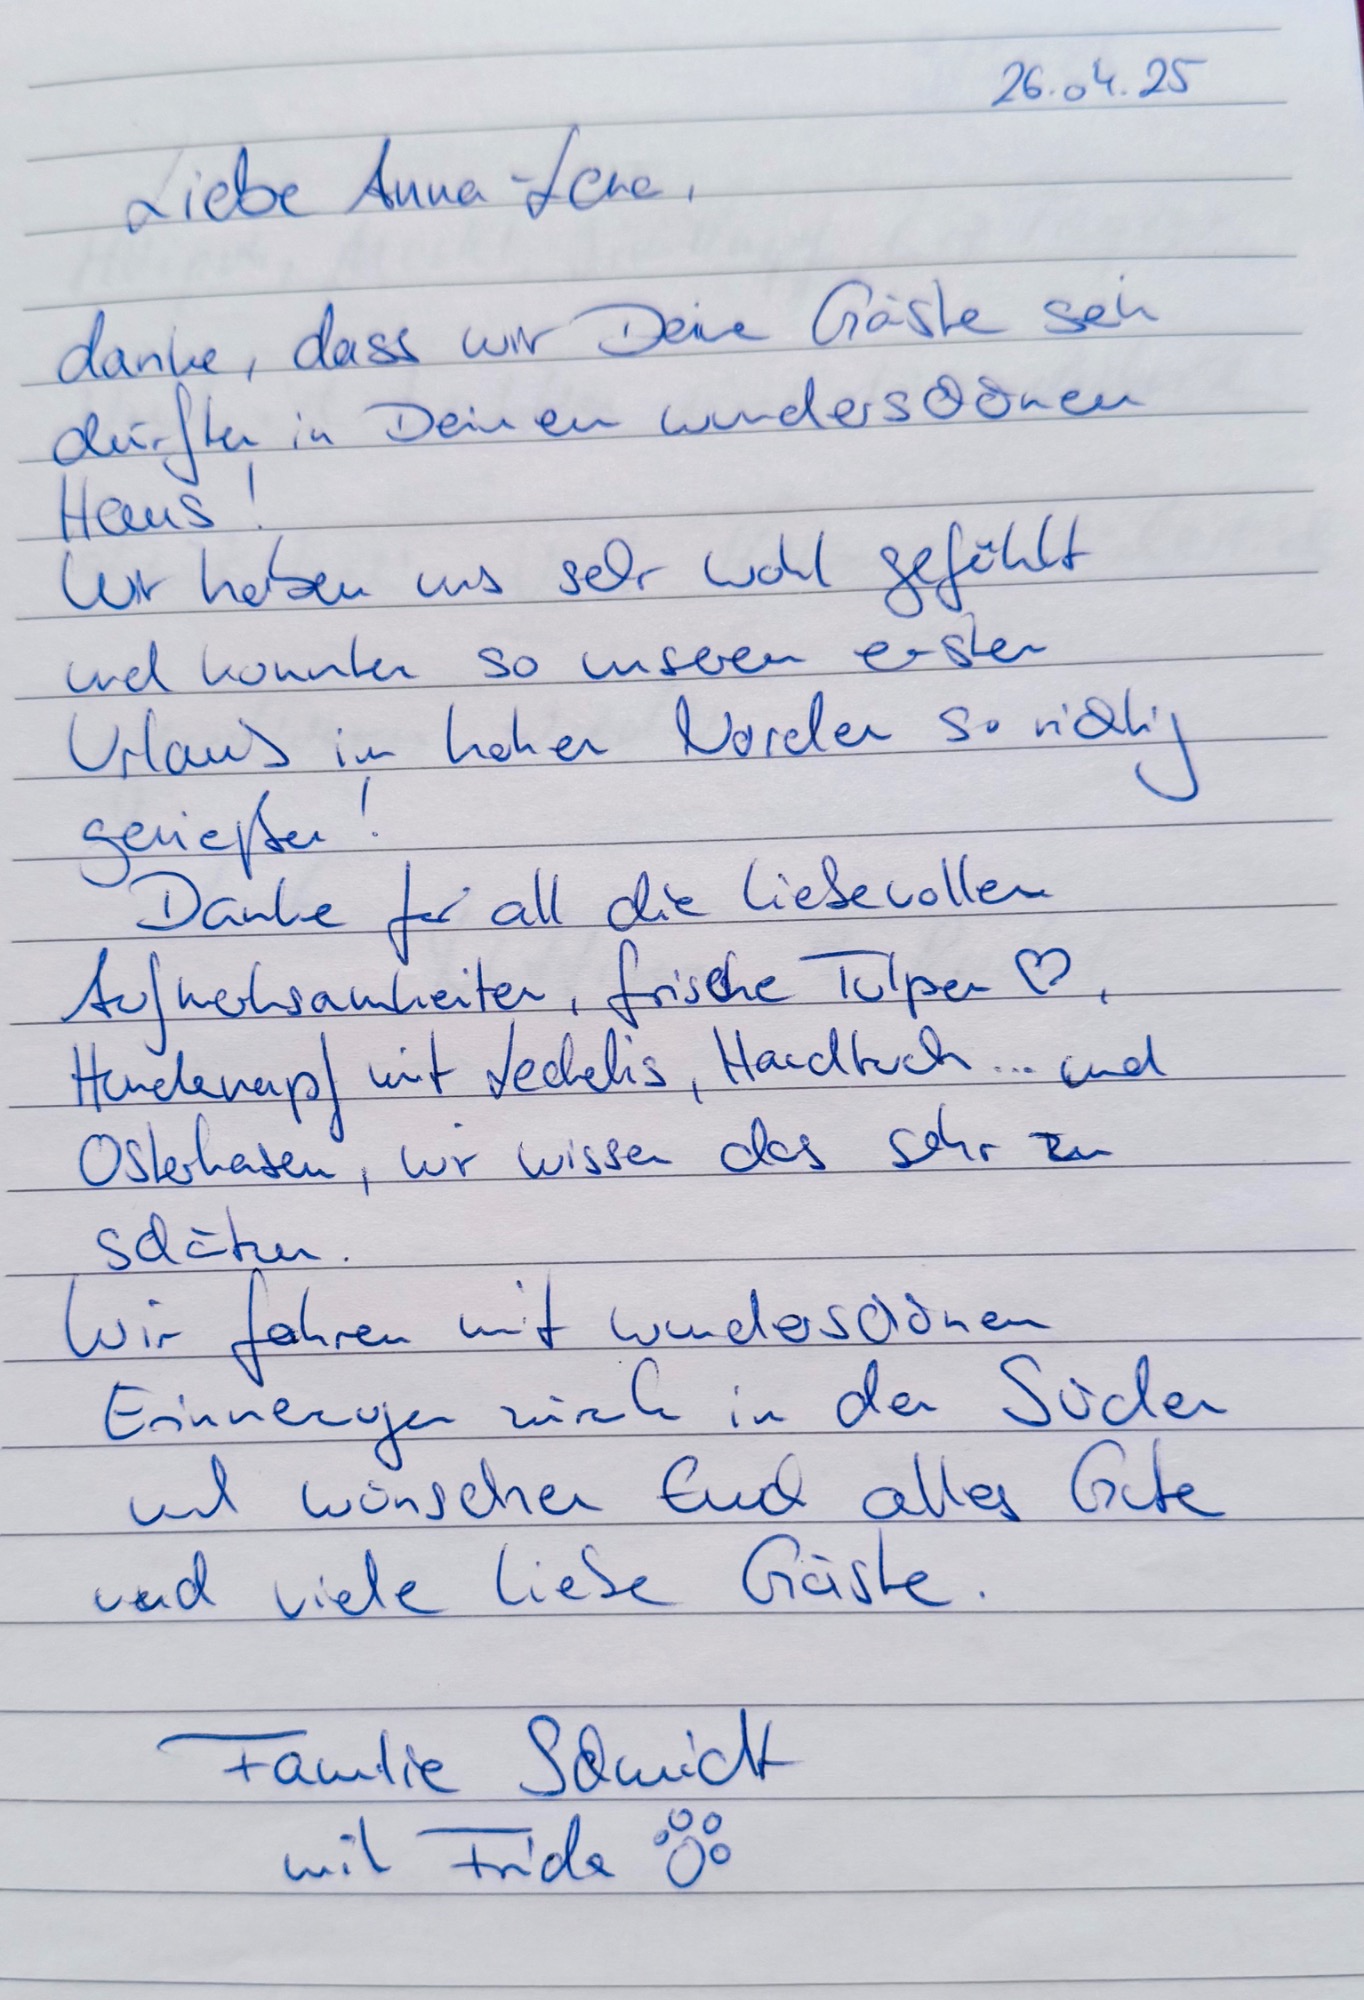 26.04.25
Liebe Anna-Lena,
danke, dass wir Deine Gäste sein
durften in Deinen wunderschönen
Haus!
Wir haben uns sehr wohl gefühlt
und konnten so unseren ersten
Urlaub im hohen Norden so richtig
genießen!
Danke für all die liebevollen
Aufmerksamkeiten, frische Tulpen ♡,
Hundenapf mit Leckelis, Handtuch ... und
Osterhasen, wir wissen das sehr zu
schätzen.
Wir fahren mit wunderschönen
Erinnerungen zurück in den Süden
und wünschen Euch alles Gute
und viele liebe Gäste.
Familie Schmidt
mit Frida